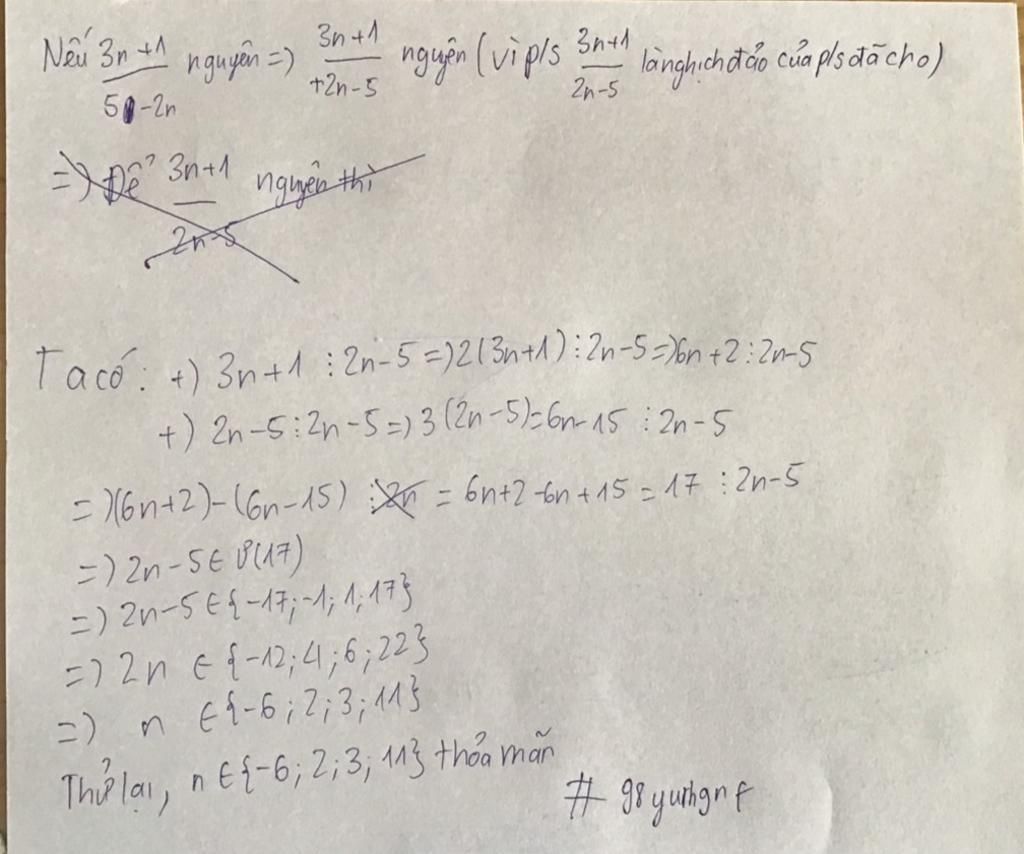 Nếu 3n+1/5-2n nguyên => 3n+1/+2n-5 nguyên (vì p/s 3n+1/2n-5 là nghịch đảo của p/s đã cho)
=) Để 3n+1/2n-5 nguyên thì
Ta có: +) 3n+1 ⋮ 2n-5 =) 2(3n+1) ⋮ 2n-5 =) 6n+2 ⋮ 2n-5
+) 2n-5 ⋮ 2n-5 =) 3(2n-5) = 6n-15 ⋮ 2n-5
=) (6n+2)-(6n-15) ⋮ 2n = 6n+2-6n+15 = 17 ⋮ 2n-5
=) 2n-5 ∈ Ư(17)
=) 2n-5 ∈ {-17; -1; 1; 17}
=) 2n ∈ {-12; 4; 6; 22}
=) n ∈ {-6; 2; 3; 11}
Thử lại, n ∈ {-6; 2; 3; 11} thỏa mãn